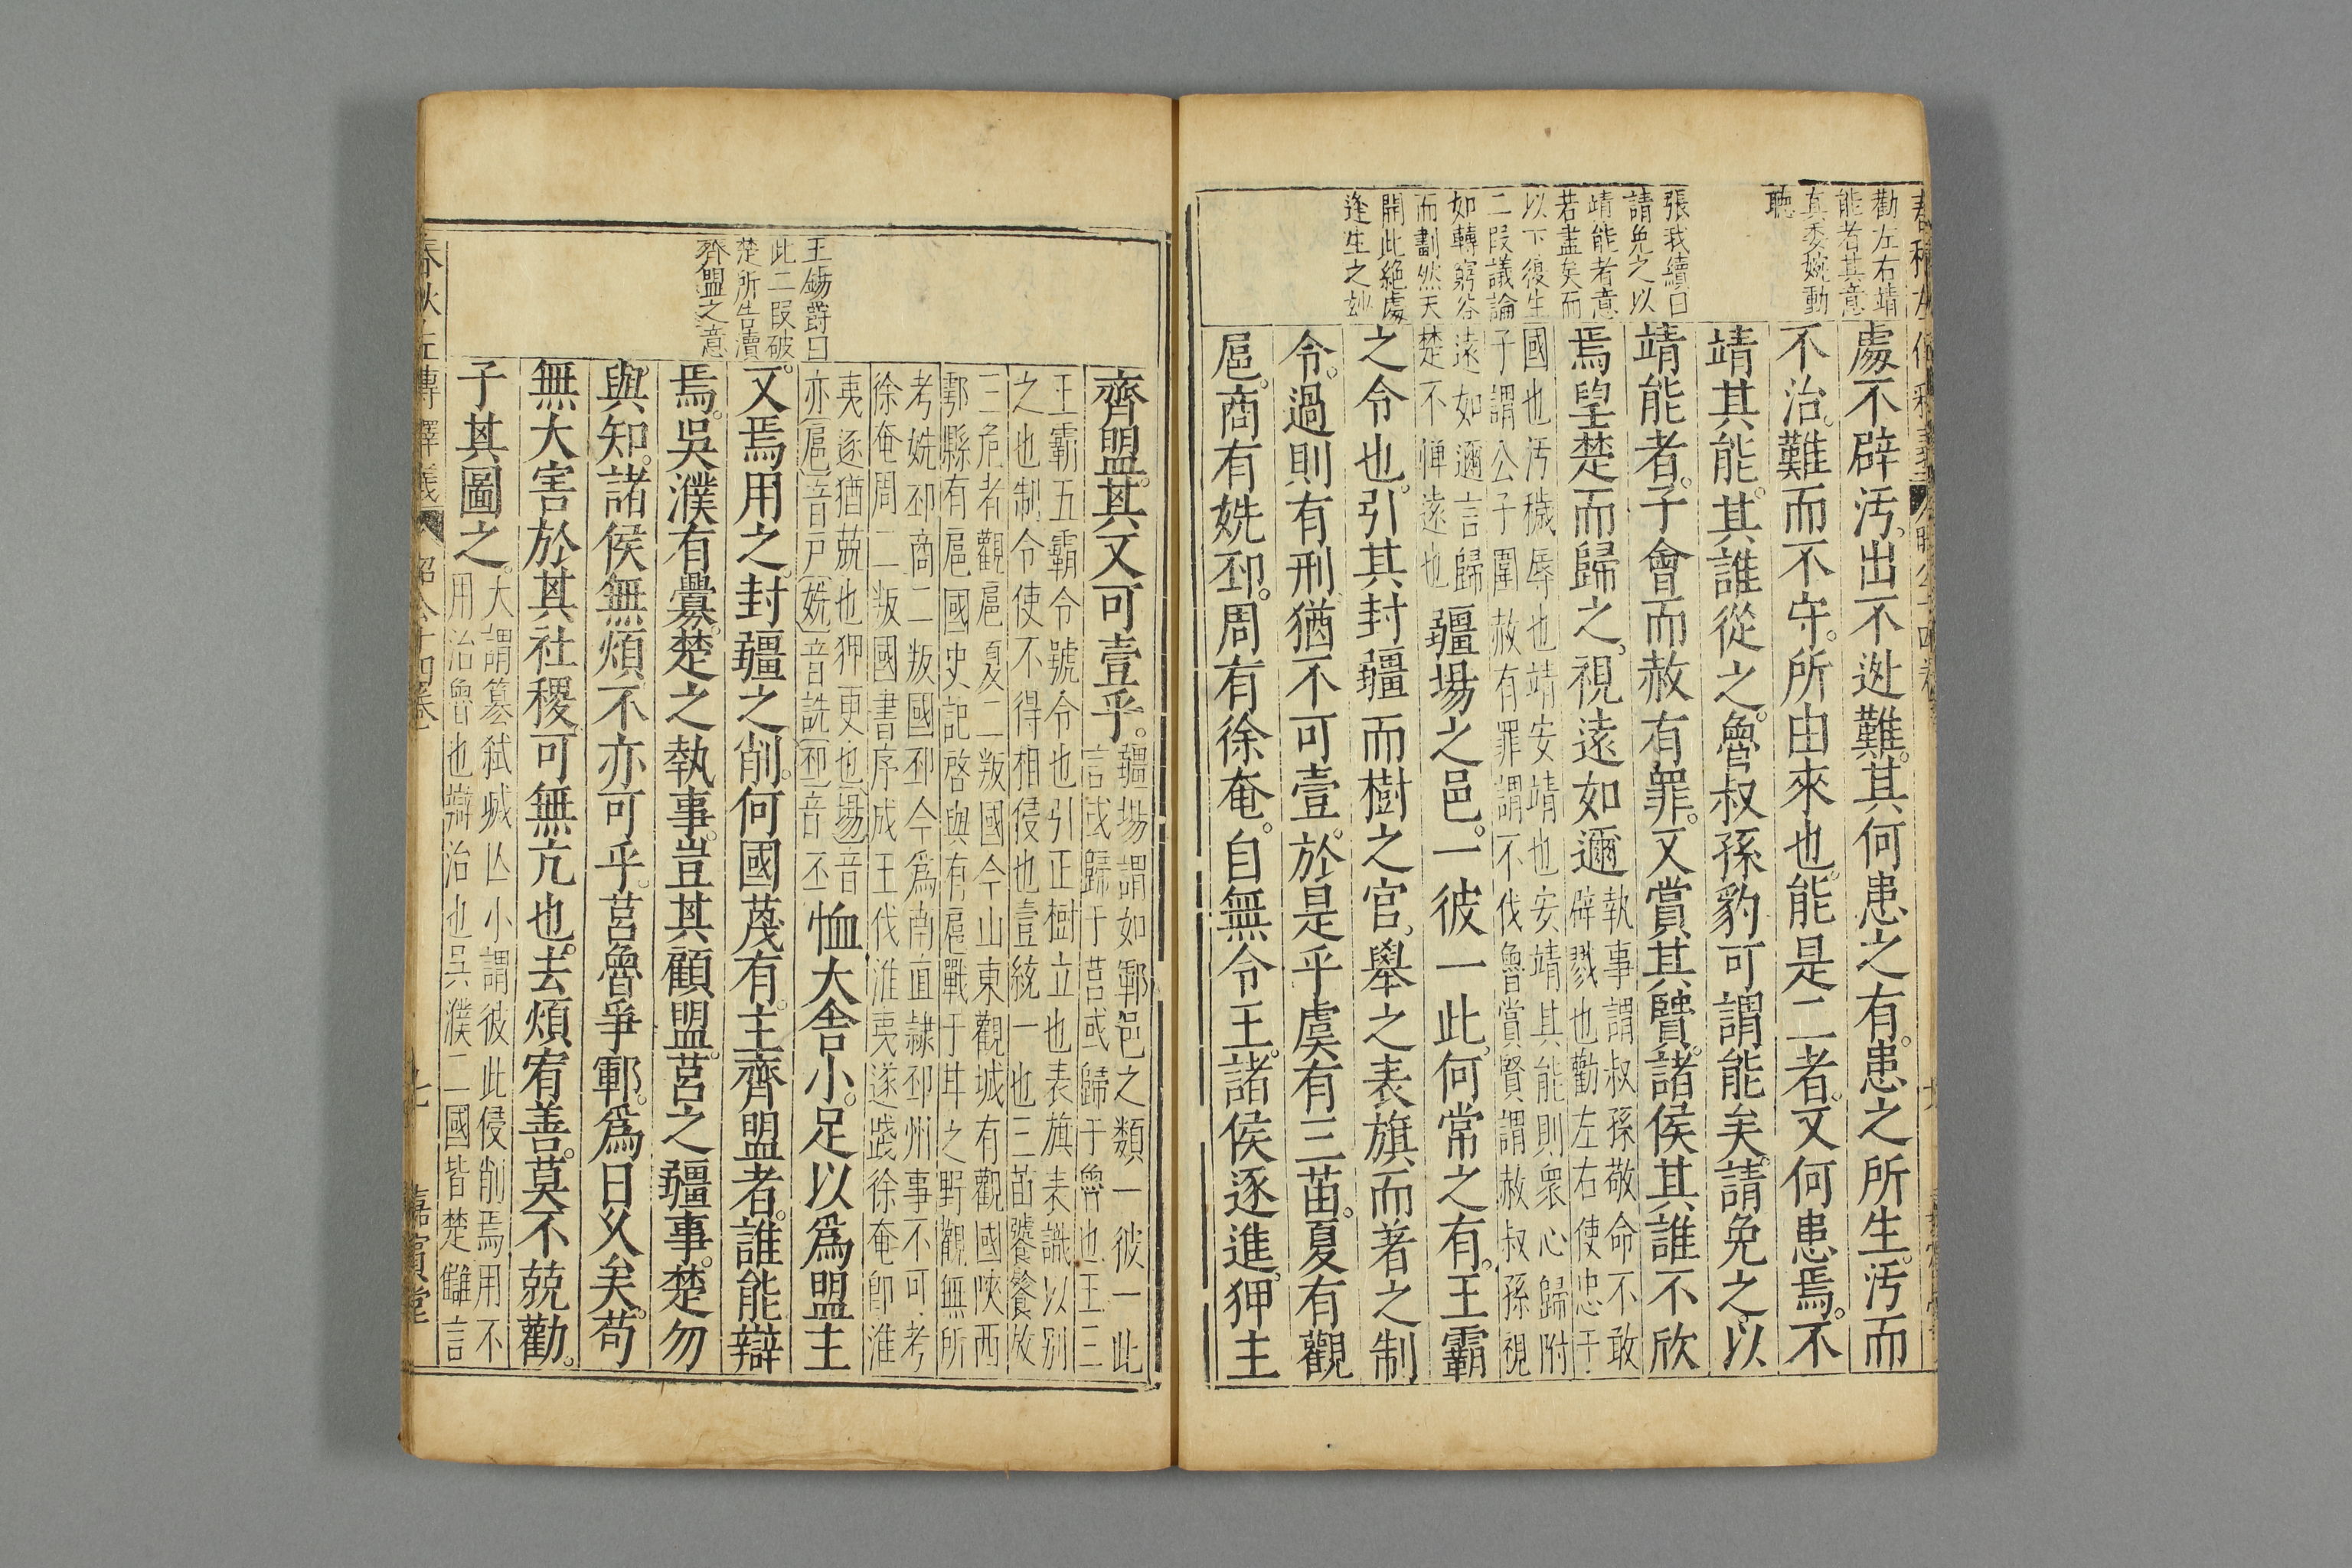 勸左右靖
能者其意
真委婉動
聽
張我續曰
請免之以
靖能者意
若盡矣而
以下復生
二段議論
如轉窮谷
而劃然天
開此絕處
逢生之玅
處不辟汚出不逃難其何患之有患之所生汚而
不治難而不守所由來也能是二者又何患焉不
靖其能其誰從之魯叔孫豹可謂能矣請免之以
靖能者子會而赦有罪又賞其賢諸侯其誰不欣
焉望楚而歸之視遠如邇
執事謂叔孫敬命不敢
辟戮也勸左右使忠于
國也汚穢辱也靖安靖也安靖其能則衆心歸附
子謂公子圍赦有罪謂不伐魯賞賢謂赦叔孫視
遠如邇言歸
楚不憚遠也
疆場之邑一彼一此何常之有王霸
之令也引其封疆而樹之官舉之表旗而著之制
令過則有刑猶不可壹於是乎虞有三苗夏有觀
扈商有姺邳周有徐奄自無令王諸侯逐進狎主
王錫爵曰
此二段破
楚所告瀆
齊盟之意
齊盟其又可壹乎
疆場謂如鄆邑之類一彼一此
言或歸于莒或歸于魯也王三
王霸五霸令號令也引正樹立也表旗表識以別
之也制令使不得相侵也壹統一也三苗饕餮放
三危者觀扈夏二叛國今山東觀城有觀國陜西
鄠縣有扈國史記啓與有扈戰于甘之野觀無所
考姺邳商二叛國邳今爲南直隷邳州事不可考
徐奄周二叛國書序成王伐淮夷遂踐徐奄卽淮
夷逐猶競也狎更也場音
亦扈音戸姺音詵邳音丕
恤大舍小足以爲盟主
又焉用之封疆之削何國蔑有主齊盟者誰能辯
焉吳濮有釁楚之執事豈其顧盟莒之疆事楚勿
與知諸侯無煩不亦可乎莒魯爭鄆爲日久矣苟
無大害於其社稷可無亢也去煩宥善莫不競勸
子其圖之
大謂篡弑滅亾小謂彼此侵削焉用不
用治魯也辯治也吳濮二國皆楚讎言
春秋左傳釋義 昭公十四卷 嘉賓堂